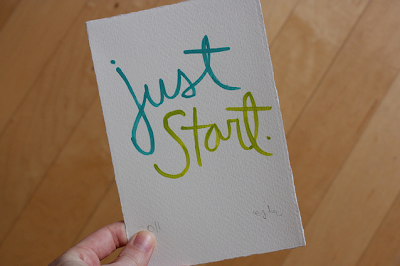 just
start.